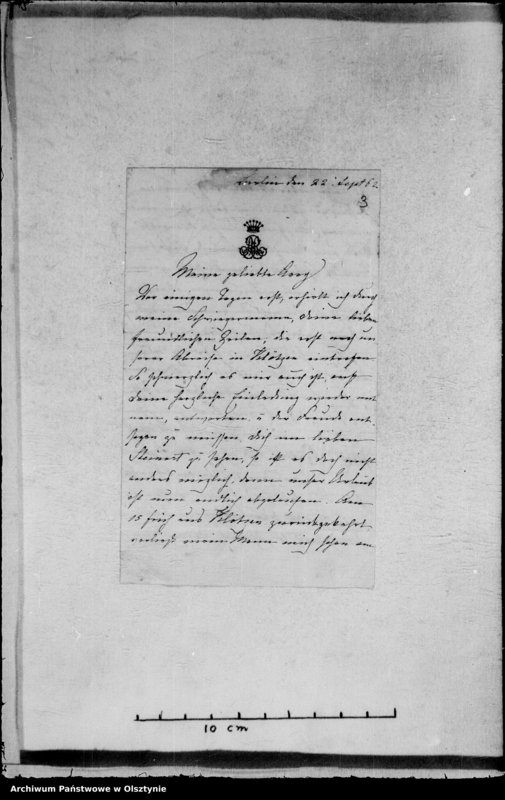 Berlin den 22 Sept 62
3
Meine geliebte
Vor einigen Tagen erst, erhielt ich durch
meine Schwiegermama, Deine lieben
freundlichen Zeilen, die erst nach un
serer Abreise in Klötzen eintrafen
So schmerzlich es mir auch ist, auf
Deine herzliche Einladung wieder mit
nein, antworten, u der Freude ent
sagen zu müssen, Dich im lieben
Steinort zu sehen, so ist es doch nicht
anders möglich, denn unser Urlaub
ist nun endlich abgelaufen. Am
15 früh aus Klötzen zurückgekehrt
verließ mein Mann mich schon am
10 cm
Archiwum Państwowe w Olsztynie